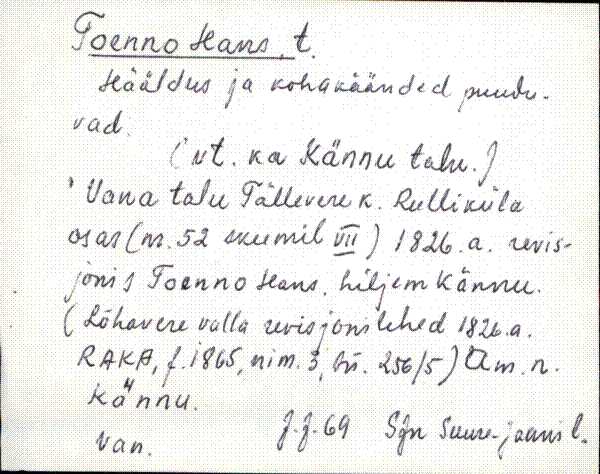 Toenno Hans, t.
Hääldus ja kohakäänded puudu-
vad.
(vt. ka Kännu talu.)
Vana talu Tällevere k. Rulliküla
osas (nr. 52 skeemil VII) 1826. a. revis-
jonis Toenno Hans, hiljem Kännu.
(Lõhavere valla revisjonilehed 1826. a.
RAKA, f. 1865, nim. 3, sü. 256/5) Am. n.
Kännu.
van. J. J. 69 Sjn Suure-Jaani l.